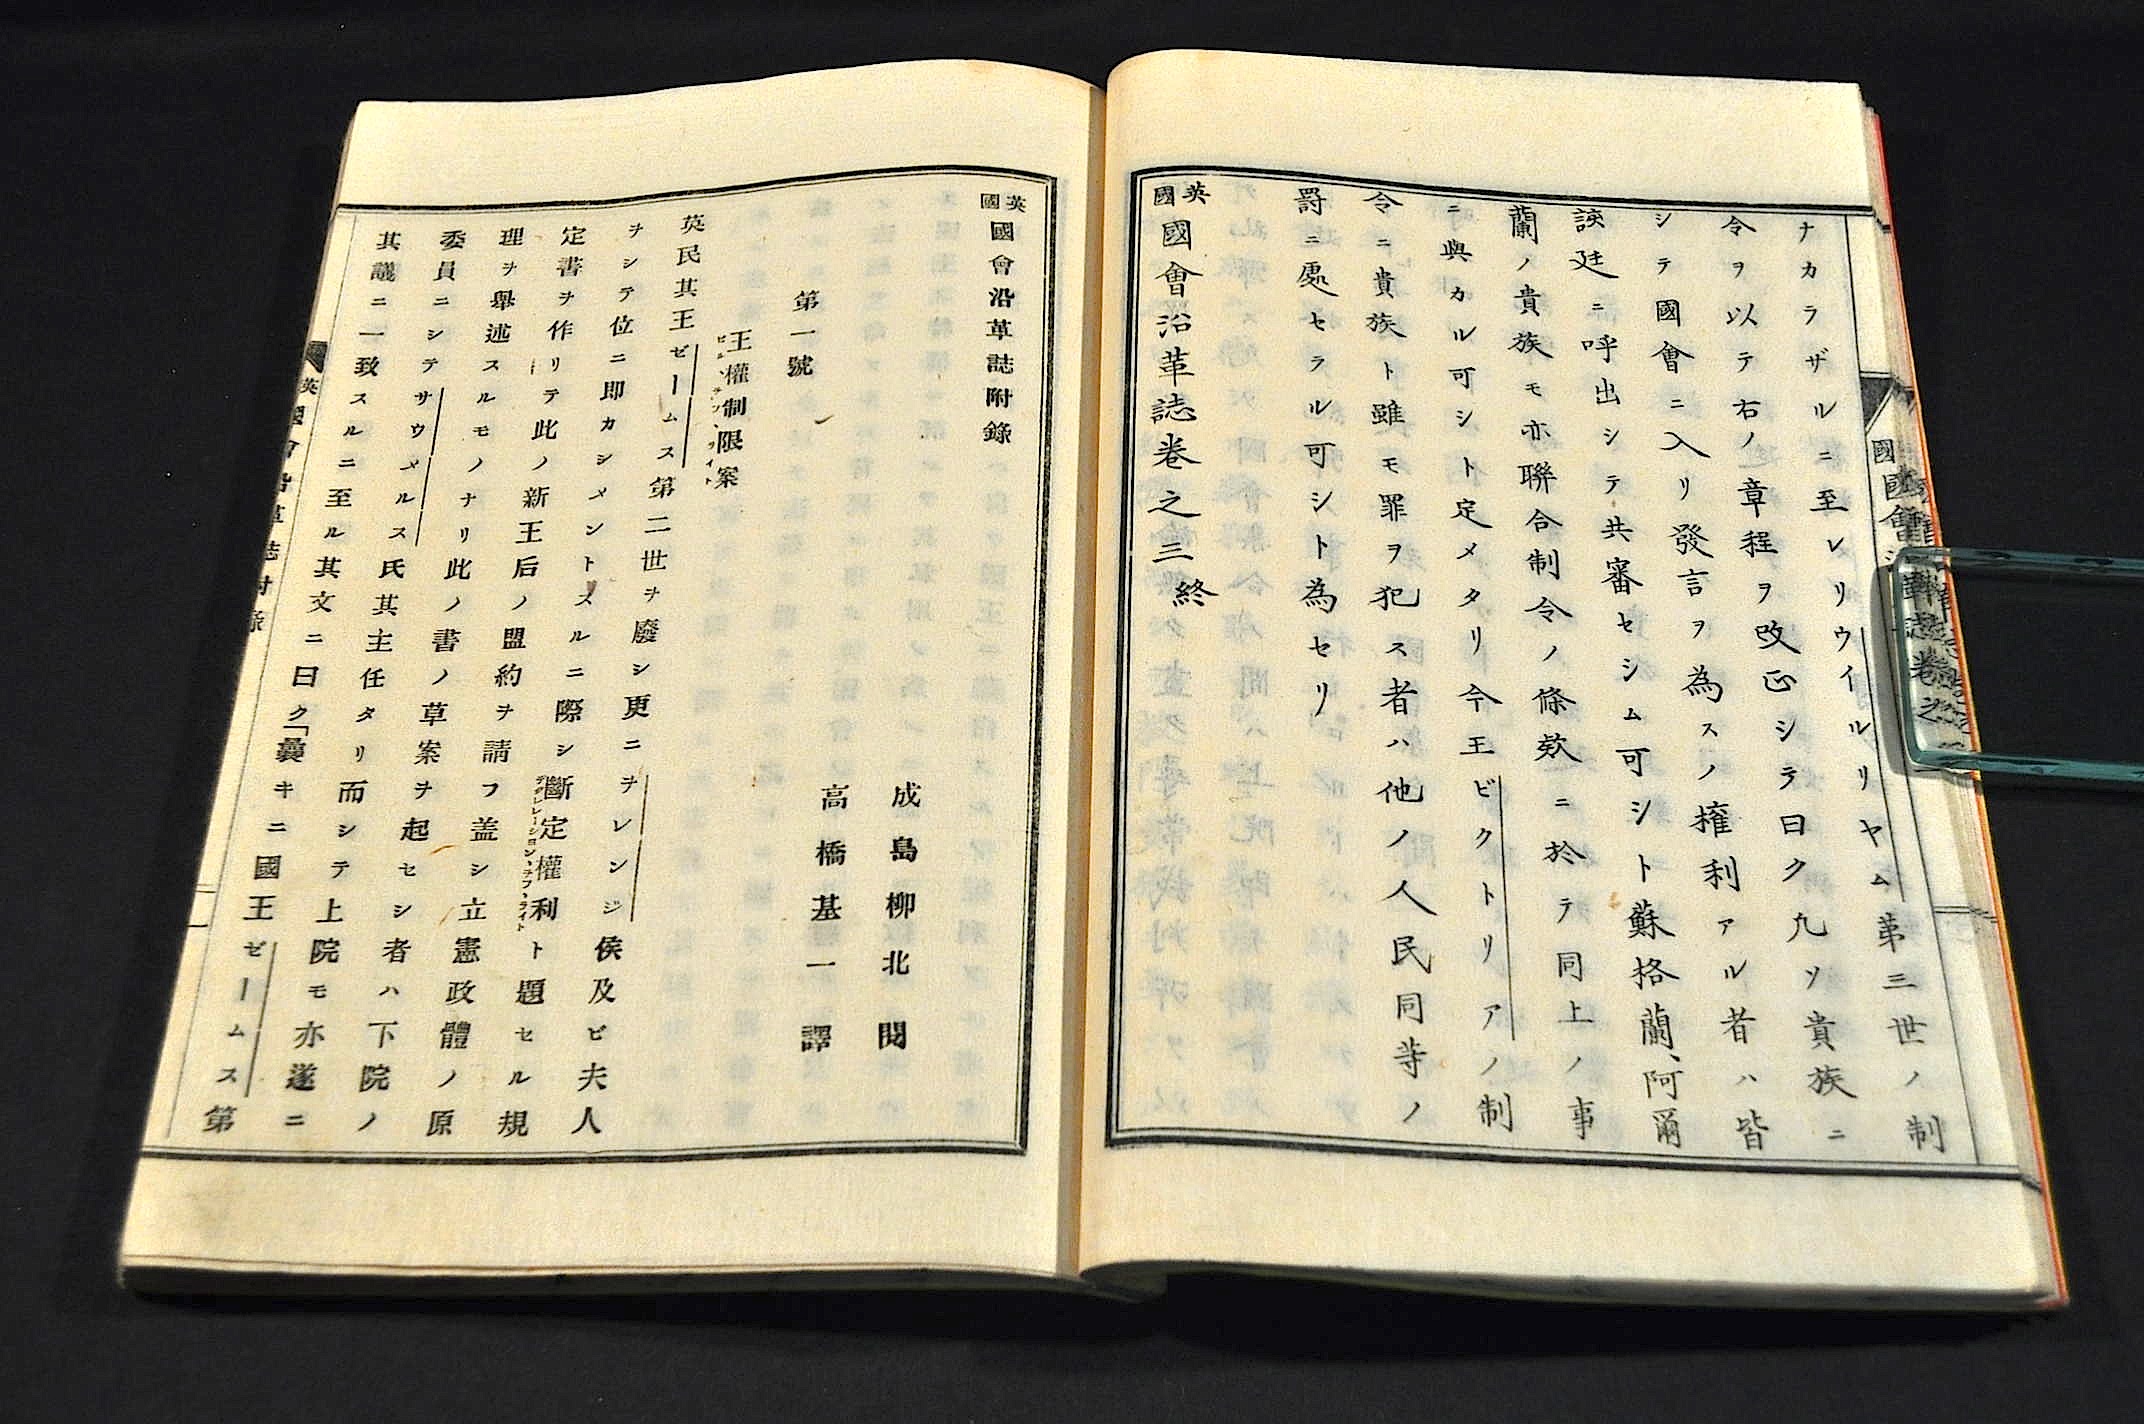 ナカラザルニ至レリウイルリヤム第三世ノ制
令ヲ以テ右ノ章程ヲ改正シテ曰ク凡ソ貴族ニ
シテ國會ニ入リ發言ヲ為スノ權利アル者ハ皆
該廷ニ呼出シテ共審セシム可シト蘇格蘭、阿爾
蘭ノ貴族モ亦聯合制令ノ條欵ニ於テ同上ノ事
ニ與カル可シト定メタリ今王ビクトリアノ制
令ニ貴族ト雖モ罪ヲ犯ス者ハ他ノ人民同等ノ
罸ニ處セラル可シト為セリ
英國國會沿革誌卷之三終
英國國會沿革誌附錄
成島柳北閱
高橋基一譯
第一號
王權制限案
英民其王ゼームス第二世ヲ廢シ更ニヲレンジ侯及ビ夫人
ヲシテ位ニ即カシメントスルニ際シ斷定權利ト題セル規
定書ヲ作リテ此ノ新王后ノ盟約ヲ請フ盖シ立憲政體ノ原
理ヲ舉述スルモノナリ此ノ書ノ草案ヲ起セシ者ハ下院ノ
委員ニシテサウメルス氏其主任タリ而シテ上院モ亦遂ニ
其議ニ一致スルニ至ル其文ニ曰ク「曩キニ國王ゼームス第